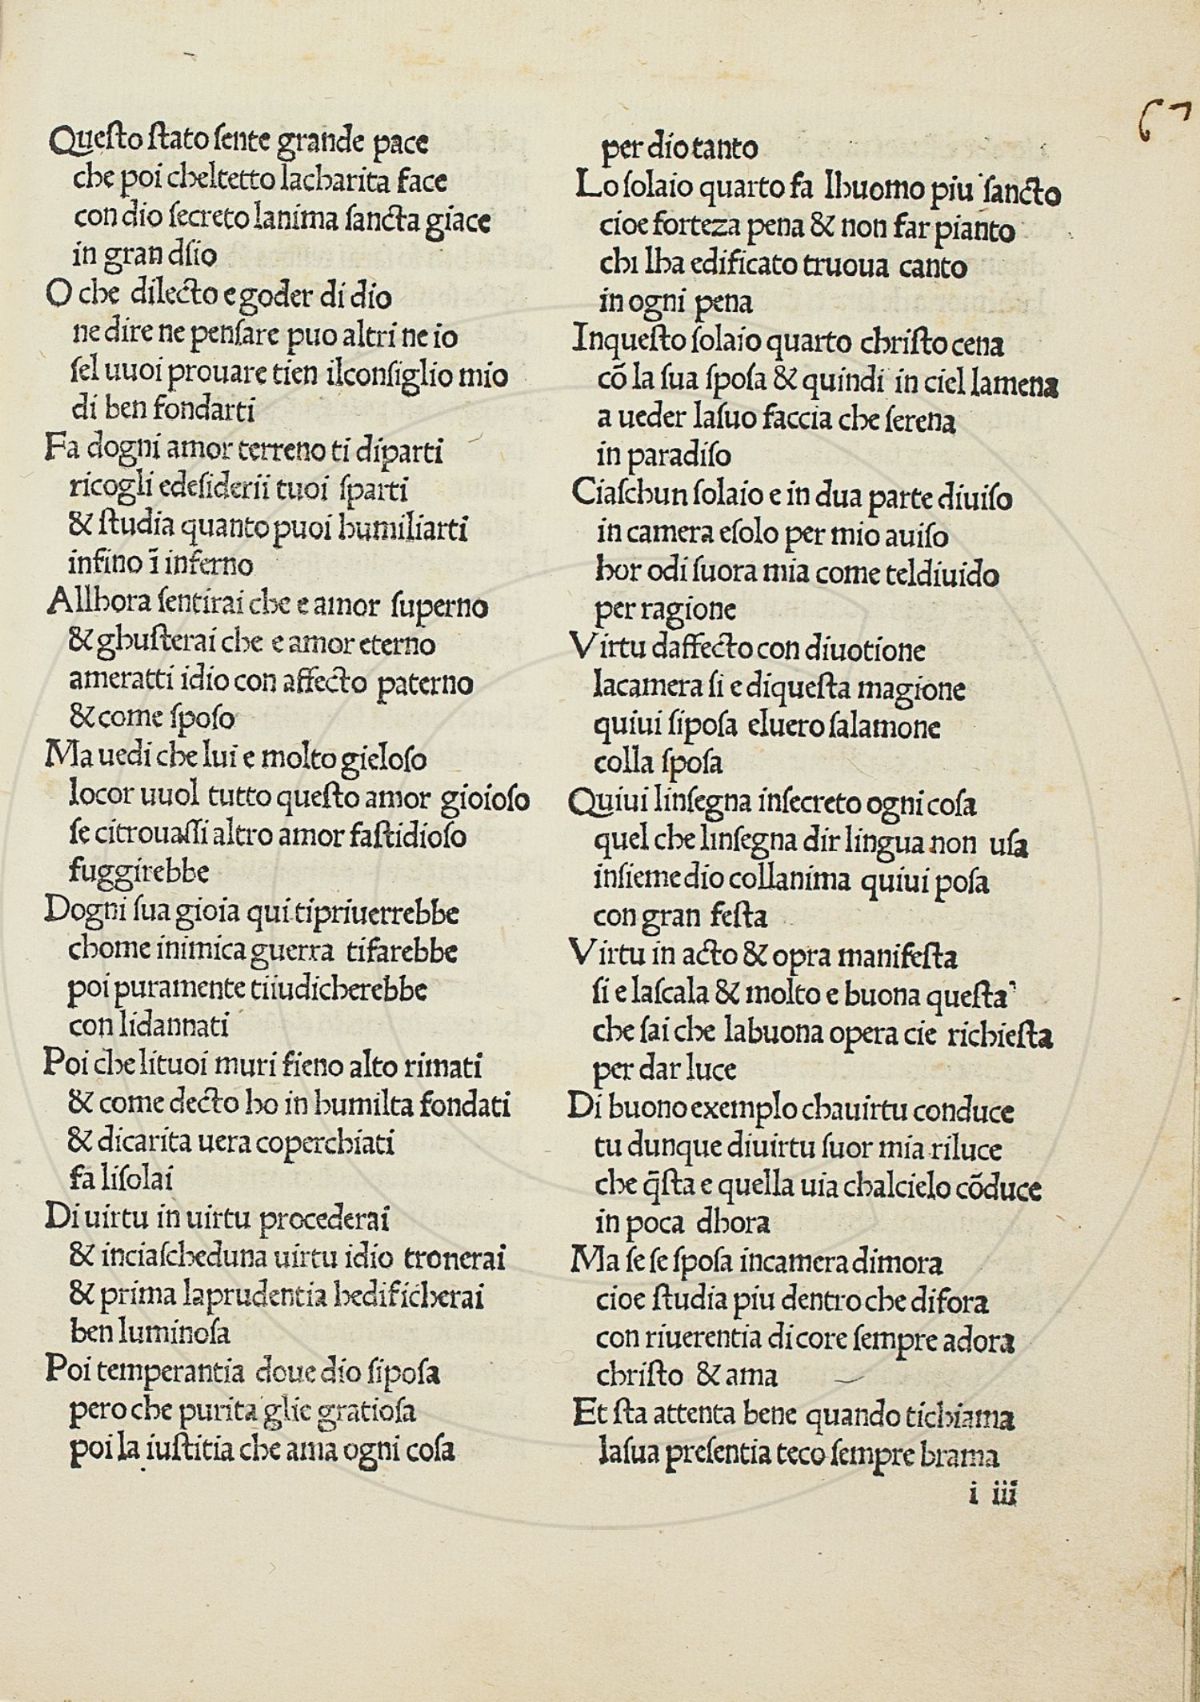 67
Questo stato sente grande pace
che poi cheltetto lacharita face
con dio secreto lanima sancta giace
in gran dsio
O che dilecto e goder di dio
ne dire ne pensare puo altri ne io
sel uuoi prouare tien ilconsiglio mio
di ben fondarti
Fa dogni amor terreno ti diparti
ricogli edesiderii tuoi sparti
& studia quanto puoi humiliarti
infino ī inferno
Allhora sentirai che e amor superno
& ghusterai che e amor eterno
ameratti idio con affecto paterno
& come sposo
Ma uedi che lui e molto gieloso
locor uuol tutto questo amor gioioso
se citrouassi altro amor fastidioso
fuggirebbe
Dogni sua gioia qui tipriuerrebbe
chome inimica guerra tifarebbe
poi puramente tiiudicherebbe
con lidannati
Poi che lituoi muri fieno alto rimati
& come decto ho in humilta fondati
& dicarita uera coperchiati
fa lisolai
Di uirtu in uirtu procederai
& inciascheduna uirtu idio tronerai
& prima laprudentia hedificherai
ben luminosa
Poi temperantia doue dio siposa
pero che purita glie gratiosa
poi la iustitia che ama ogni cosa
per dio tanto
Lo solaio quarto fa lhuomo piu sancto
cioe forteza pena & non far pianto
chi lha edificato truoua canto
in ogni pena
Inquesto solaio quarto christo cena
cō la sua sposa & quindi in ciel lamena
a ueder lasuo faccia che serena
in paradiso
Ciaschun solaio e in dua parte diuiso
in camera esolo per mio auiso
hor odi suora mia come teldiuido
per ragione
Virtu daffecto con diuotione
lacamera si e diquesta magione
quiui siposa eluero salamone
colla sposa
Quiui linsegna insecreto ogni cosa
quel che linsegna dir lingua non usa
insieme dio collanima quiui posa
con gran festa
Virtu in acto & opra manifesta
si e lascala & molto e buona questa
che sai che labuona opera cie richiesta
per dar luce
Di buono exemplo chauirtu conduce
tu dunque diuirtu suor mia riluce
che q̄sta e quella uia chalcielo cōduce
in poca dhora
Ma se se sposa incamera dimora
cioe studia piu dentro che difora
con riuerentia di core sempre adora
christo & ama
Et sta attenta bene quando tichiama
lasua presentia teco sempre brama
i iii